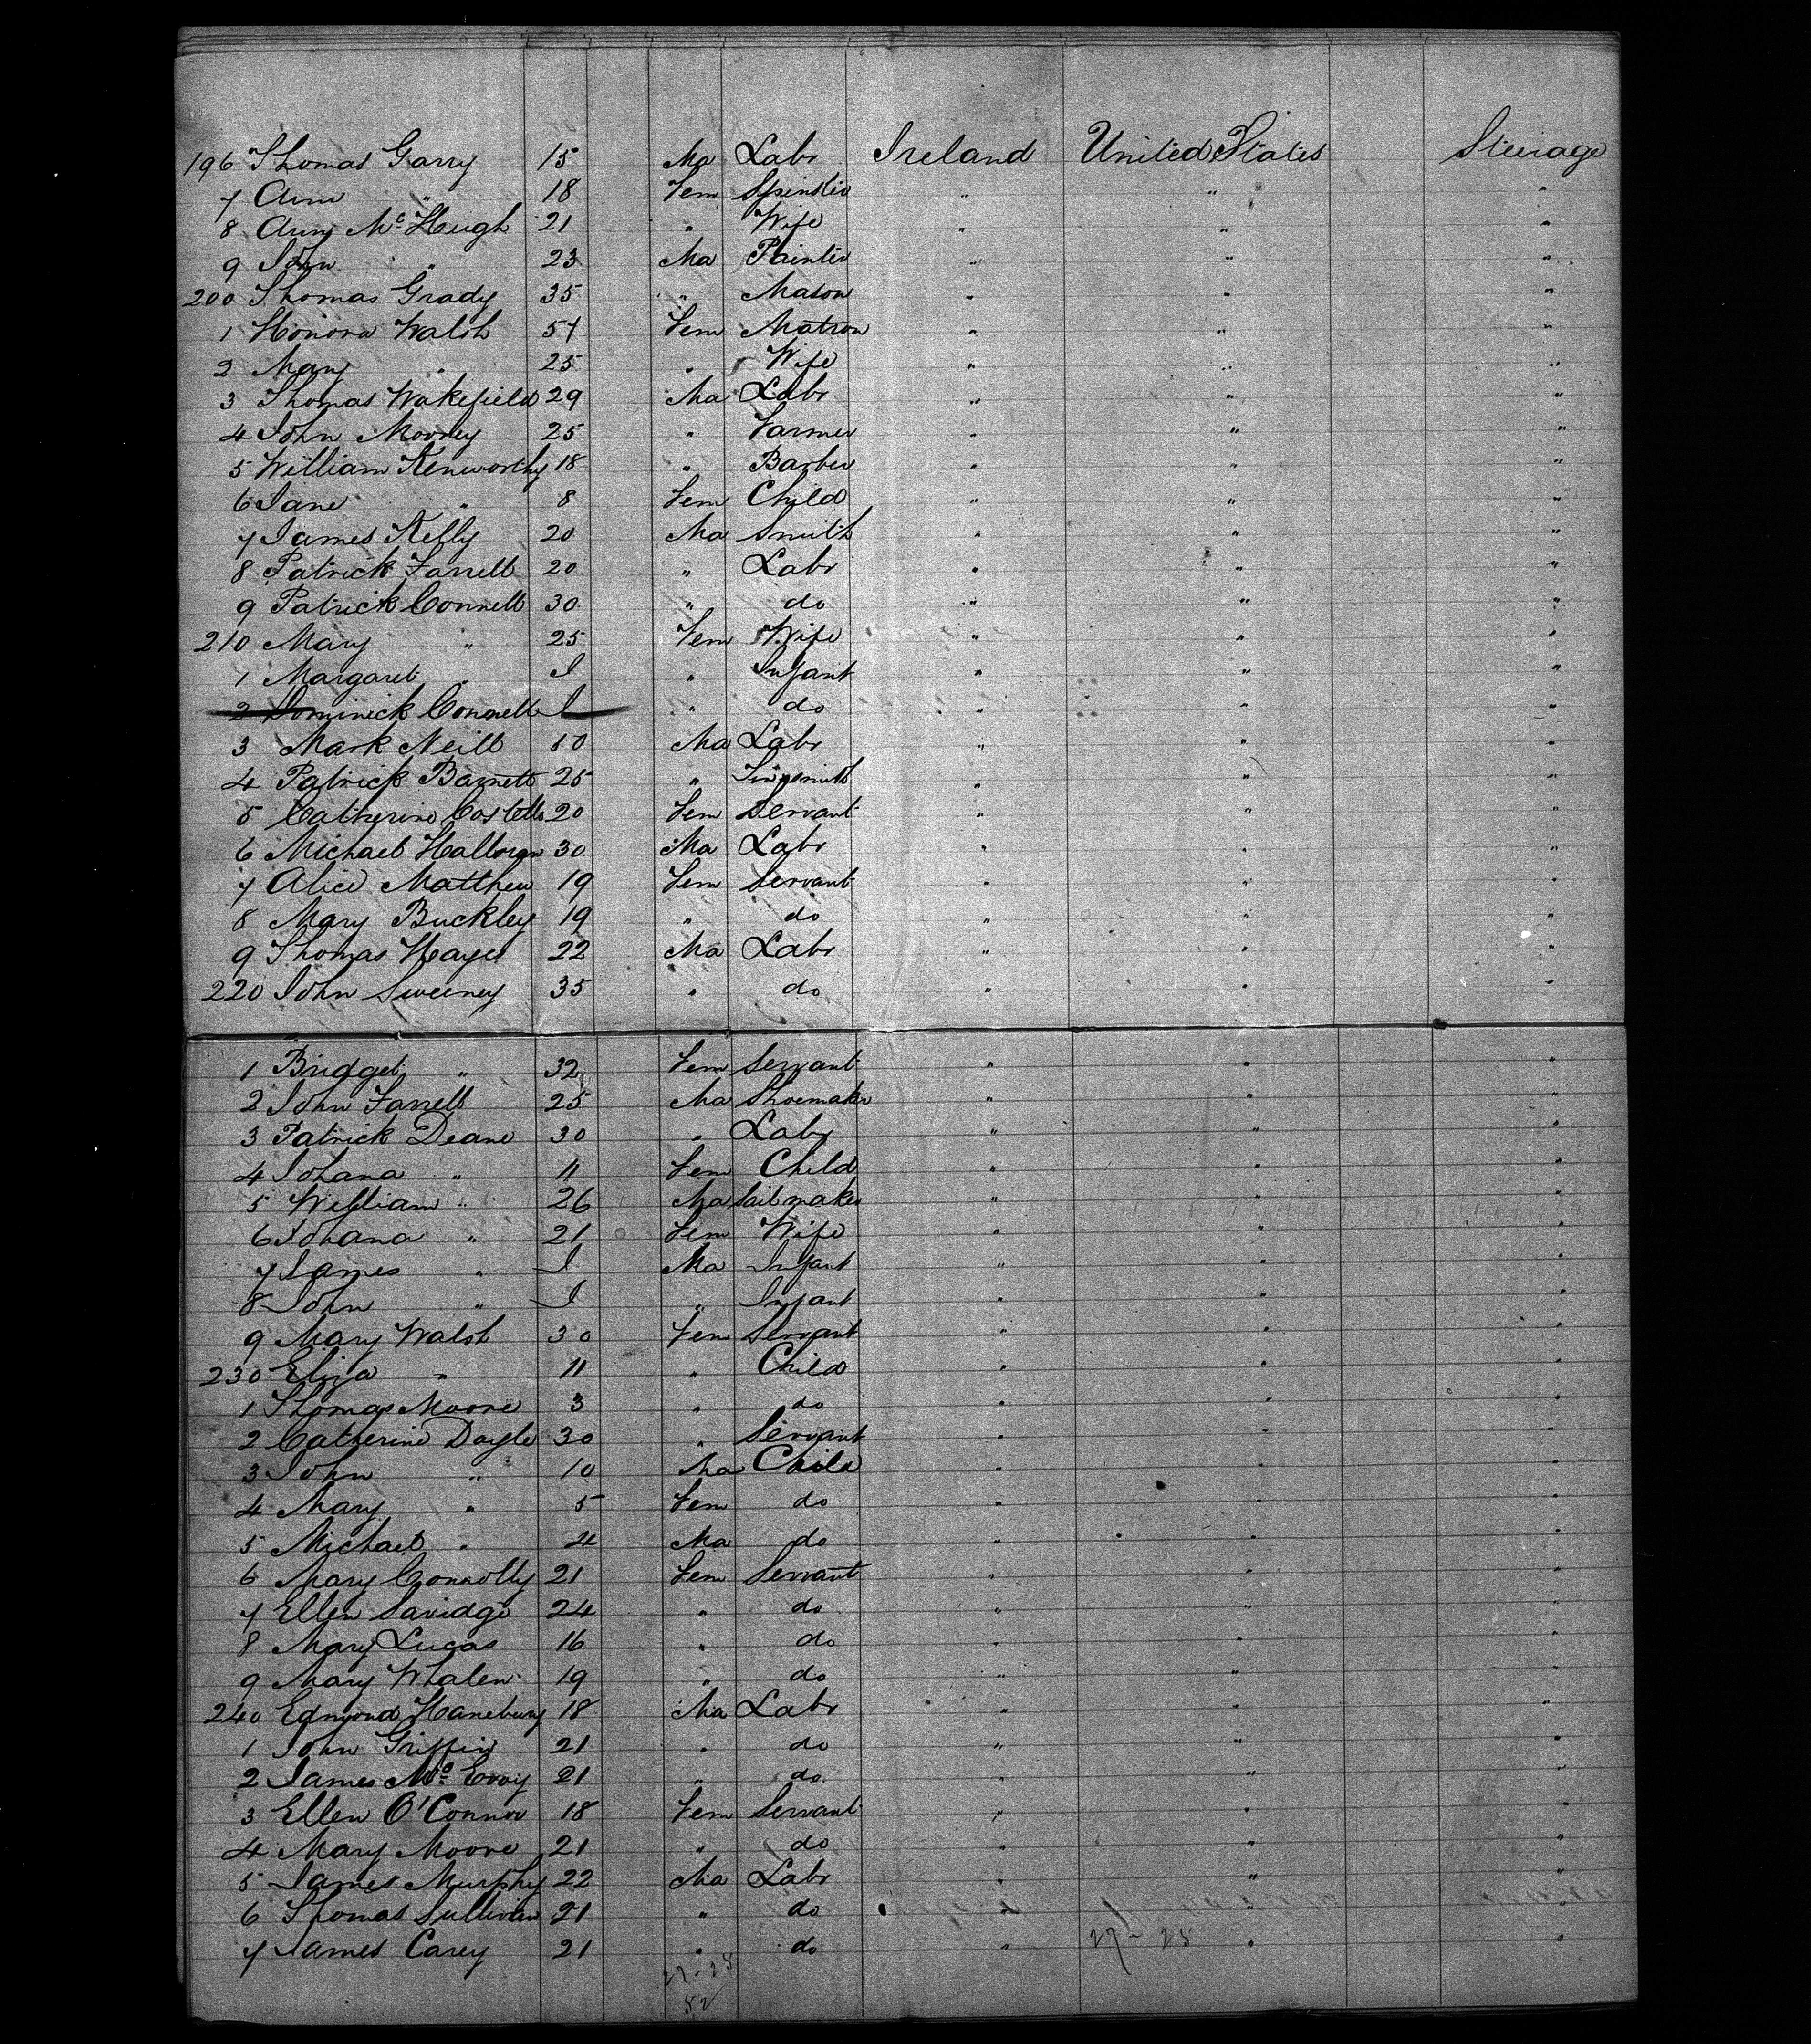 196 Thomas Garry 15 Ma Labr Ireland United States Steerage
7 Ann " 18 Fem Spinster " " "
8 Ann McHeigh 21 " Wife " " "
9 John " 23 Ma Painter " " "
200 Thomas Grady 35 " Mason " " "
1 Honora Walsh 57 Fem Matron " " "
2 Mary " 25 " Wife " " "
3 Thomas Wakefield 29 Ma Labr " " "
4 John Mooney 25 " Farmer " " "
5 William Kenworthy 18 " Barber " " "
6 Jane " 8 Fem Child " " "
7 James Kelly 20 Ma Smith " " "
8 Patrick Farrell 20 " Labr " " "
9 Patrick Connell 30 " do " " "
210 Mary " 25 Fem Wife " " "
1 Margaret " I " Infant " " "
2 Dominick Connell I " do " " "
3 Mark Neill 10 Ma Labr " " "
4 Patrick Barnett 25 " Tinsmith " " "
5 Catherine Costello 20 Fem Servant " " "
6 Michael Halloran 30 Ma Labr " " "
7 Alice Matthew 19 Fem Servant " " "
8 Mary Buckley 19 " do " " "
9 Thomas Hayes 22 Ma Labr " " "
220 John Sweeney 35 " do " " "
1 Bridget " 32 Fem Servant " " "
2 John Farrell 25 Ma Shoemaker " " "
3 Patrick Deane 30 " Labr " " "
4 Johana " 11 Fem Child " " "
5 William " 26 Ma Sailmaker " " "
6 Johana " 21 Fem Wife " " "
7 James " I Ma Infant " " "
8 John " I " Infant " " "
9 Mary Walsh 30 Fem Servant " " "
230 Eliza " 11 " Child " " "
1 Thomas Moore 3 " do " " "
2 Catherine Doyle 30 " Servant " " "
3 John " 10 Ma Child " " "
4 Mary " 5 Fem do " " "
5 Michael " 4 Ma do " " "
6 Mary Connolly 21 Fem Servant " " "
7 Ellen Savidge 24 " do " " "
8 Mary Lucas 16 " do " " "
9 Mary Whalen 19 " do " " "
240 Edmond Hanebury 18 Ma Labr " " "
1 John Griffin 21 " do " " "
2 James McEvoy 21 " do " " "
3 Ellen O'Connor 18 Fem Servant " " "
4 Mary Moore 21 " do " " "
5 James Murphy 22 Ma Labr " " "
6 Thomas Sullivan 21 " do " " "
7 James Carey 21 " do " 27-25 " "
27-25
52